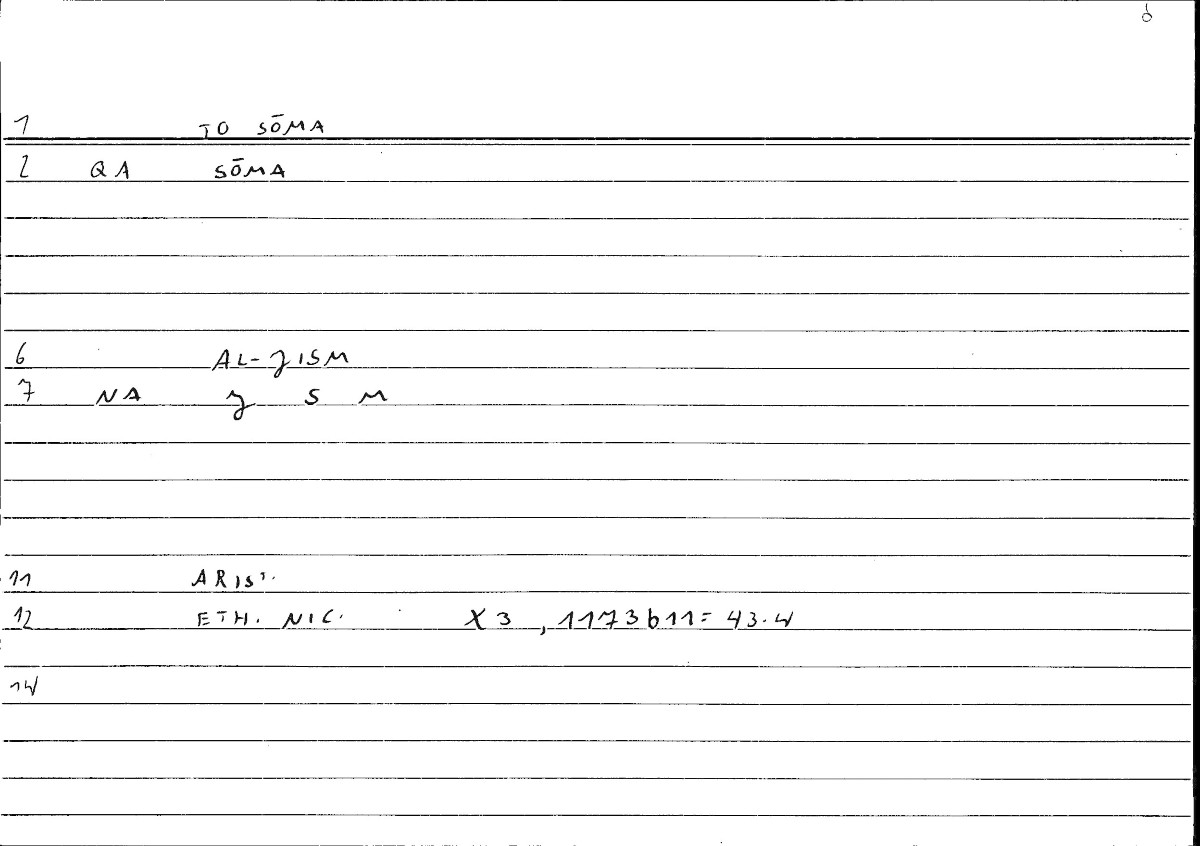 1 TO SŌMA
2 QA SŌMA
6 AL-ȷISM
7 NA ȷ S M
11 ARIST.
12 ETH. NIC. X 3, 1173b11 = 43.4
14